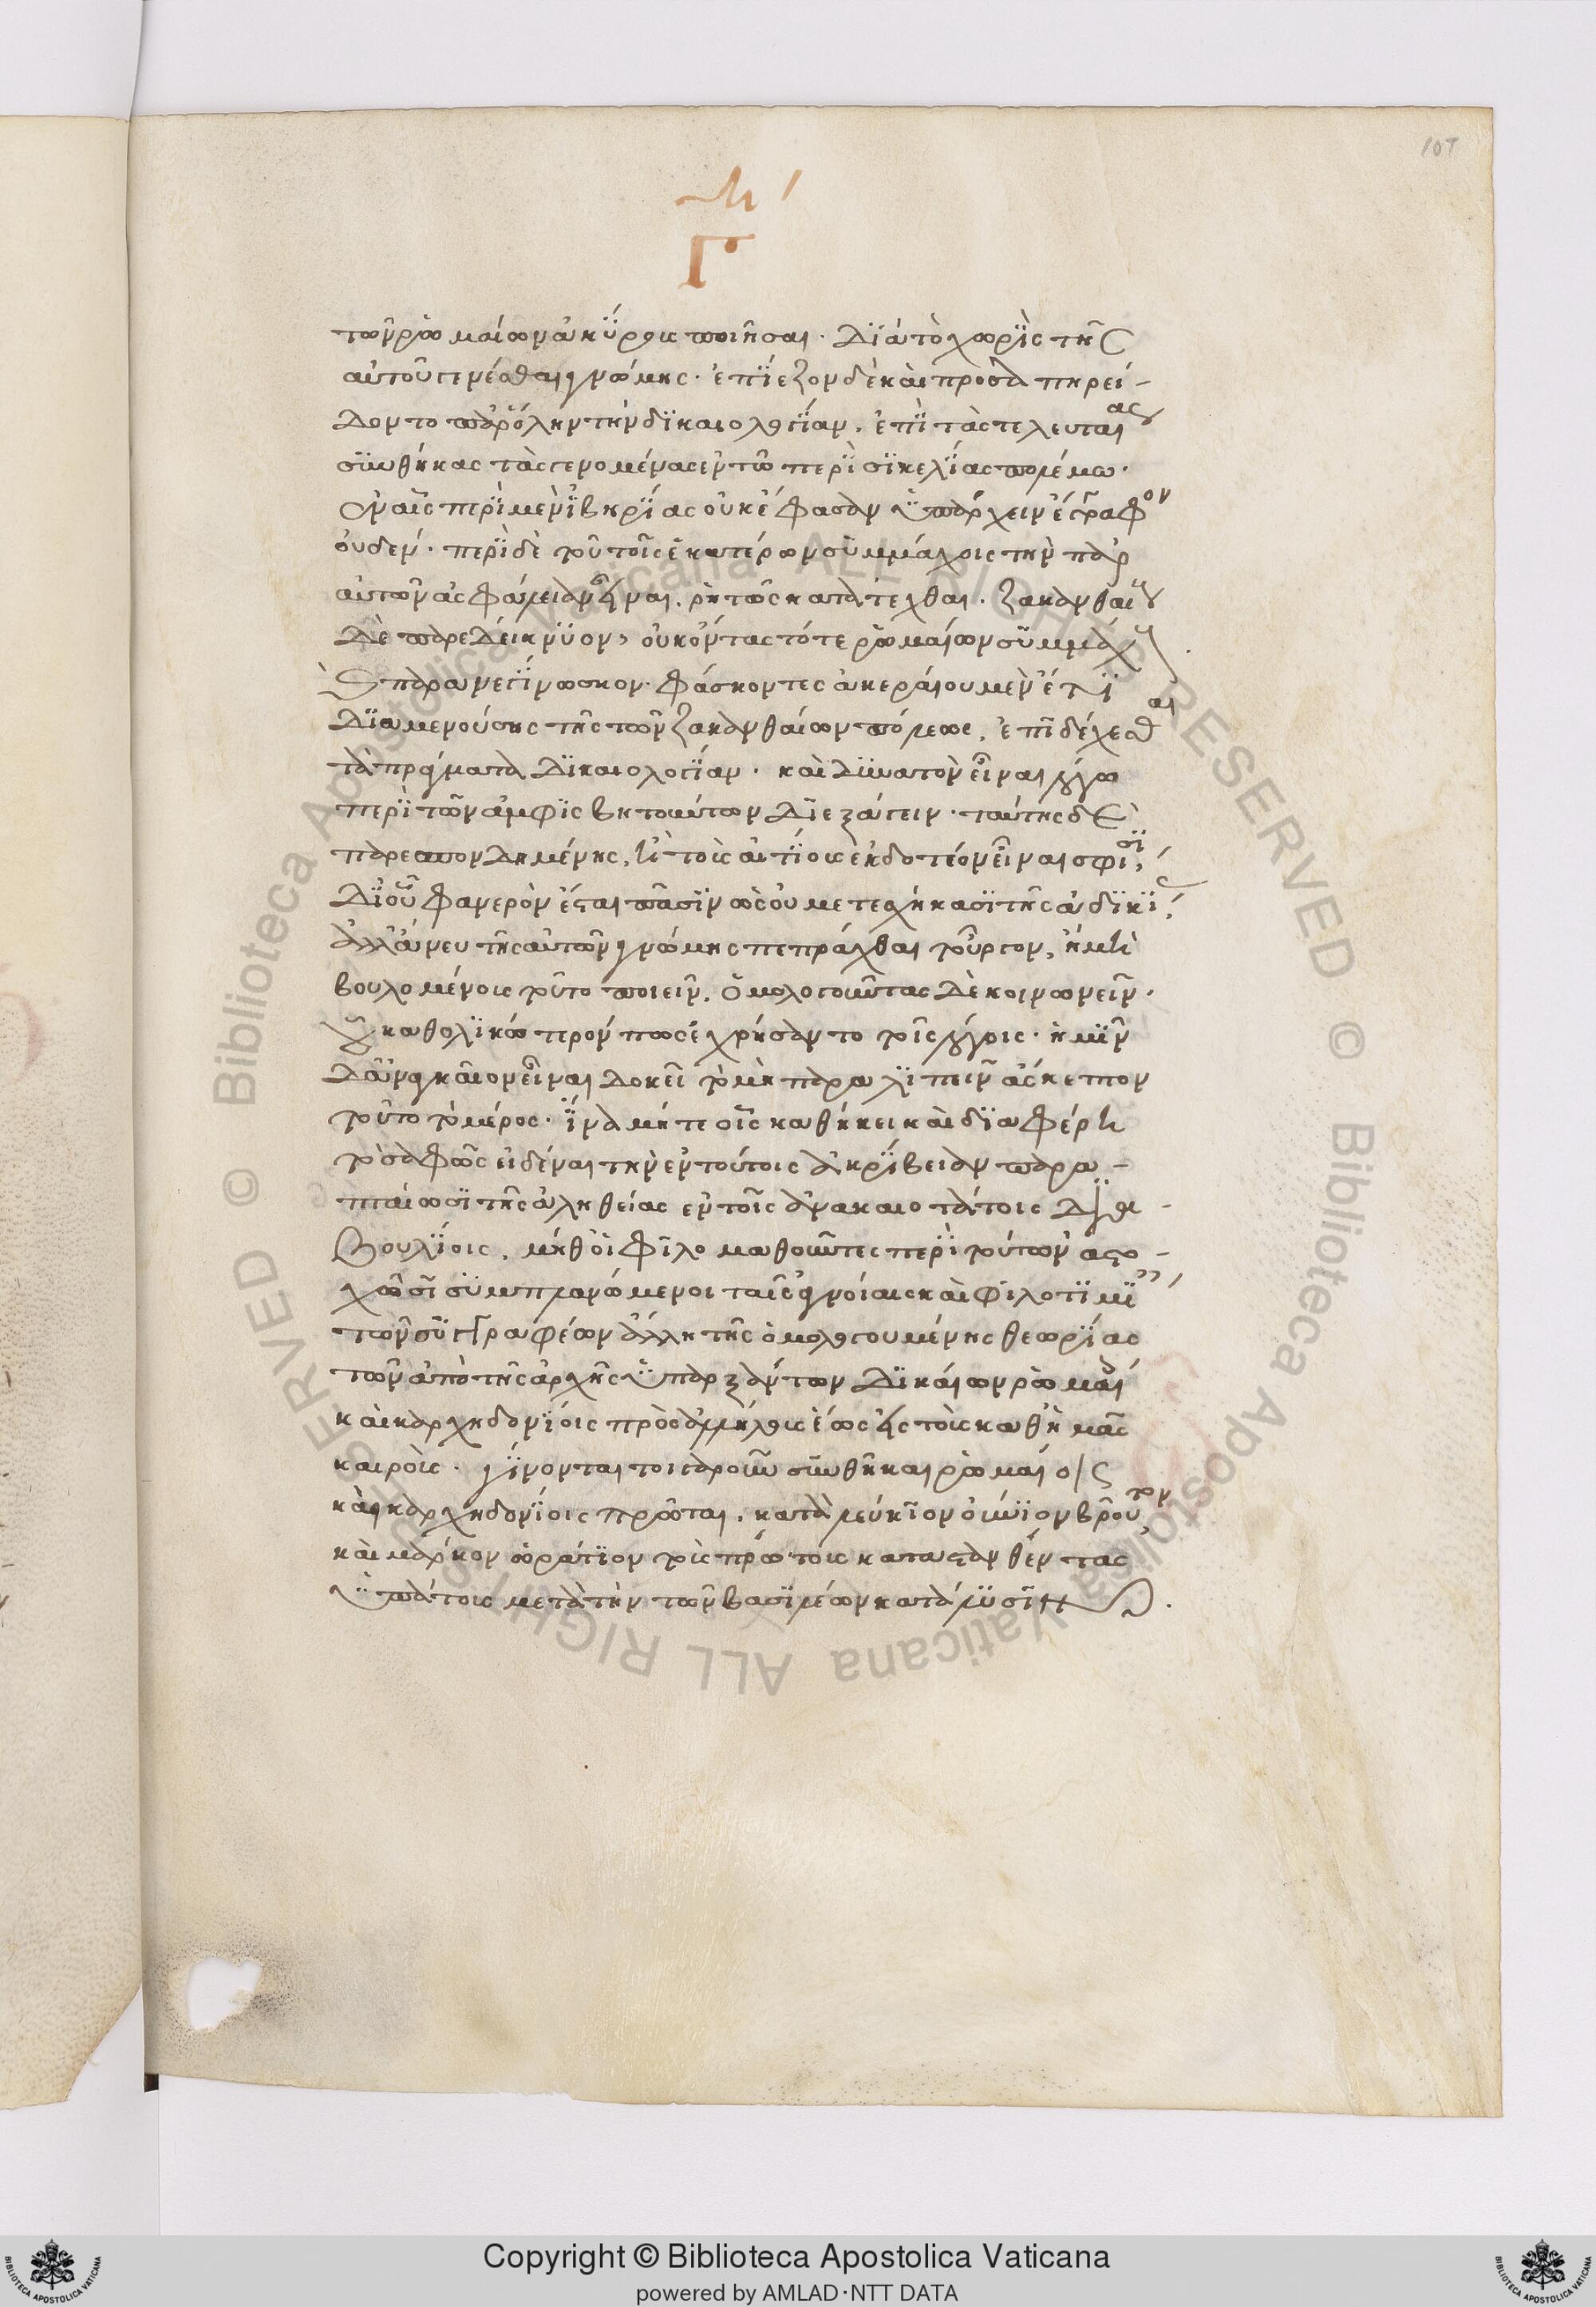 107
Γ
τῶν ῥωμαίων ἀκύρους ποιῆσαι. διὰ τὸ χωρὶς τῆς
αὐτοῦ γενέσθαι γνώμης. ἐπίεζον δὲ καὶ προσαπηρεί-
δοντο παρ' ὅλην τὴν δικαιολογίαν, ἐπὶ τὰς τελευταίας
συνθήκας τὰς γενομένας ἐν τῷ περὶ σικελίας πολέμω.
ἐν αἷς περὶ μὲν ἰβηρίας οὐκ ἔφασαν ὑπάρχειν ἔγγραφον
οὐδέν. περὶ δὲ τοῦ τοῖς ἑκατέρων συμμάχοις τὴν παρ'
αὐτῶν ἀσφάλειαν εἶναι, ῥητῶς κατατετάχθαι. ζακανθαίους
δὲ παρεδείκνυον, οὐκ ὄντας τότε ῥωμαίων συμμάχους
παρανεγίνωσκον. φάσκοντες ἀκεραίου μὲν ἔτι
διαμενούσης τῆς τῶν ζακανθαίων πόλεως, ἐπιδέχεσθαι
τὰ πράγματα δικαιολογίαν. καὶ δυνατὸν εἶναι λόγω
περὶ τῶν ἀμφισβητουμένων διεξάγειν. ταύτης δὲ
παρεσπονδημένης, ἢ τοὺς αἰτίους ἐκδοτέον εἶναι σφίσι,
δι' οὗ φανερὸν ἔσται πᾶσιν ὡς οὐ μετεσχήκασι τῆς ἀδικίας,
ἀλλ' ἄνευ τῆς αὐτῶν γνώμης πεπράχθαι τοὖργον, ἢ μὴ
βουλομένους τοῦτο ποιεῖν, ὁμολογοῦντας δὲ κοινωνεῖν.
καθολικώτερον πως ἐχρήσαντο τοῖς λόγοις. ἡμῖν
δ' ἀναγκαῖον εἶναι δοκεῖ τὸ μὴ παραλιπεῖν ἄσκεπτον
τοῦτο τὸ μέρος. ἵνα μήτε οἷς καθήκει καὶ διαφέρει
τὸ σαφῶς εἰδέναι τὴν ἐν τούτοις ἀκρίβειαν παρα-
παίωσι τῆς ἀληθείας ἐν τοῖς ἀναγκαιοτάτοις δια-
βουλίοις, μήθ' οἱ φιλομαθοῦντες περὶ τούτων ἀστο-
χῶσι συμπλανώμενοι ταῖς ἀγνοίαις καὶ φιλοτιμίαις
τῶν συγγραφέων ἀλλ' ᾖ τῆς ὁμολογουμένης θεωρίας
τῶν ἀπὸ τῆς ἀρχῆς ὑπαρξάντων δικαίων ῥωμαίοις
καὶ καρχηδονίοις πρὸς ἀλλήλους ἕως εἰς τοὺς καθ' ἡμᾶς
καιρούς. γίνονται τοιγαροῦν συνθῆκαι ῥωμαίοις
καὶ καρχηδονίοις πρῶται, κατὰ λεύκιον ἰούνιον βροῦτον
καὶ μάρκον ὁράτιον τοὺς πρώτους κατασταθέντας
ὑπάτους μετὰ τὴν τῶν βασιλέων κατάλυσιν.
Copyright © Biblioteca Apostolica Vaticana
powered by AMLAD·NTT DATA